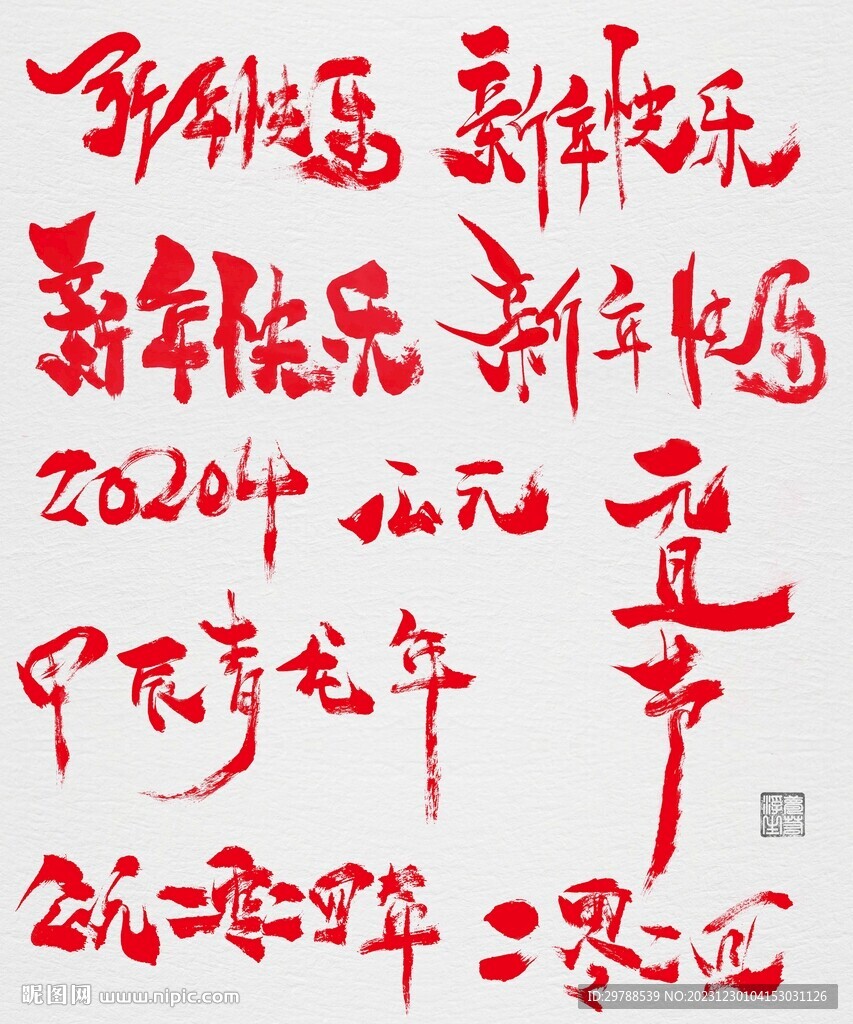 新年快乐
新年快乐
新年快乐
新年快乐
20204
公元
元旦节
甲辰青龙年
公元二零二四年
二零二四
昵图网 www.nipic.com
ID:29788539 NO:20231230104153031126